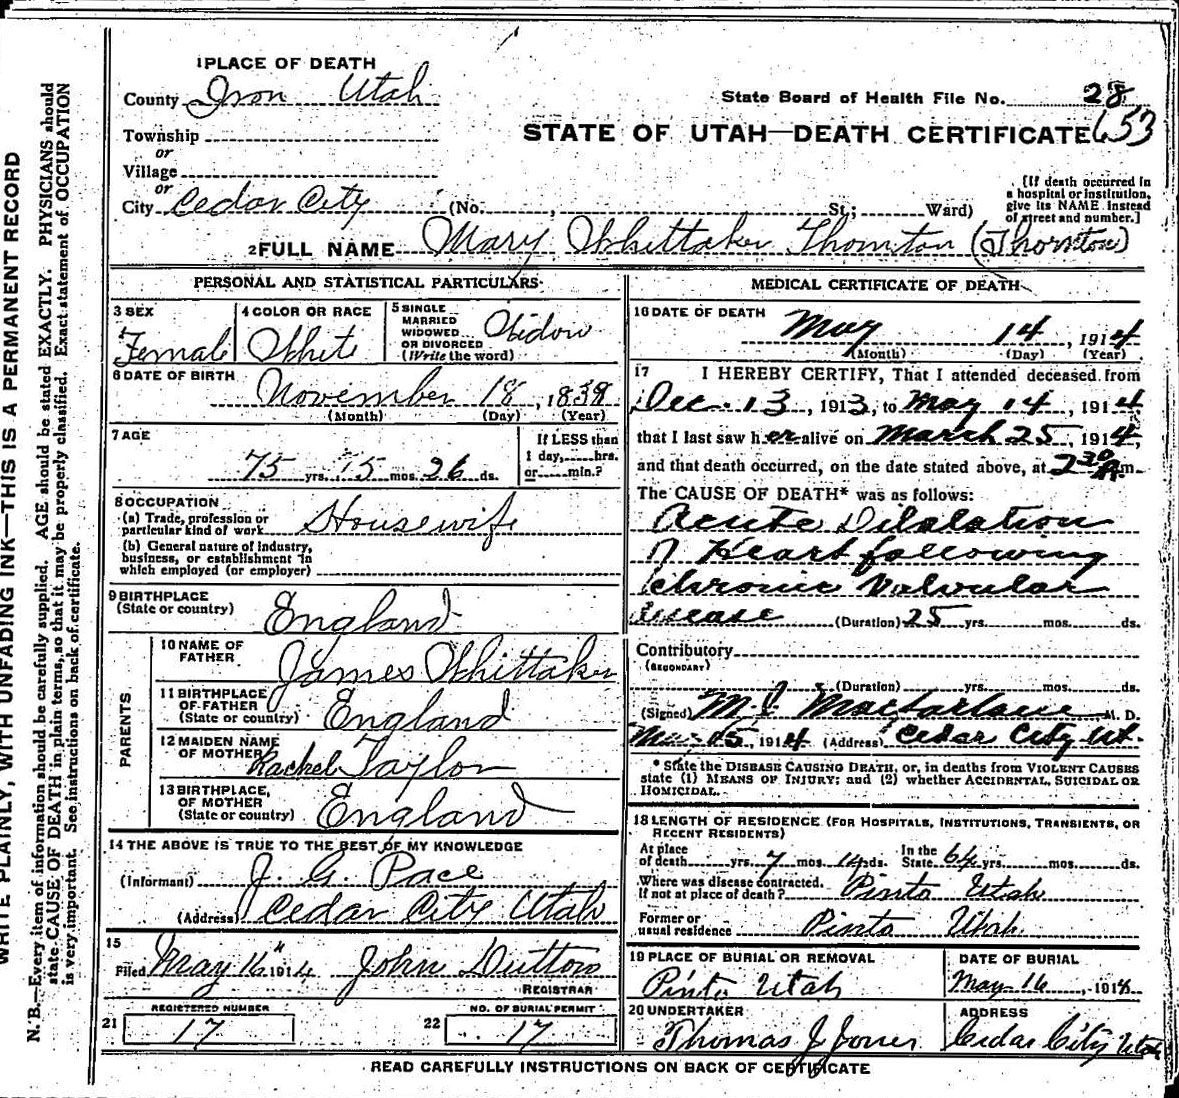 WRITE PLAINLY, WITH UNFADING INK—THIS IS A PERMANENT RECORD
N. B.—Every item of information should be carefully supplied. AGE should be stated EXACTLY. PHYSICIANS should
state CAUSE OF DEATH in plain terms, so that it may be properly classified. Exact statement of OCCUPATION
is very important. See instructions on back of certificate.
1 PLACE OF DEATH
County Iron Utah
State Board of Health File No. 28
Township
STATE OF UTAH—DEATH CERTIFICATE 653
or
Village
or
City Cedar City (No. , St.; Ward)
[If death occurred in
a hospital or institution,
give its NAME instead
of street and number.]
2 FULL NAME Mary Whittaker Thornton (Thornton)
PERSONAL AND STATISTICAL PARTICULARS
3 SEX
Female
4 COLOR OR RACE
White
5 SINGLE
MARRIED
WIDOWED
OR DIVORCED
(Write the word)
Widow
6 DATE OF BIRTH
November 18, 1838
(Month) (Day) (Year)
7 AGE
75 yrs. 5 mos. 26 ds.
If LESS than
1 day, hrs.
or min.?
8 OCCUPATION
(a) Trade, profession or
particular kind of work Housewife
(b) General nature of industry,
business, or establishment in
which employed (or employer)
9 BIRTHPLACE
(State or country) England
PARENTS
10 NAME OF
FATHER James Whittaker
11 BIRTHPLACE
OF FATHER
(State or country) England
12 MAIDEN NAME
OF MOTHER Rachel Taylor
13 BIRTHPLACE,
OF MOTHER
(State or country) England
14 THE ABOVE IS TRUE TO THE BEST OF MY KNOWLEDGE
(Informant) J. G. Pace
(Address) Cedar City Utah
15
Filed May 16" 1914 John Dutton
REGISTRAR
REGISTERED NUMBER
21 17
NO. OF BURIAL PERMIT
22 17
MEDICAL CERTIFICATE OF DEATH
16 DATE OF DEATH
May 14, 1914
(Month) (Day) (Year)
17 I HEREBY CERTIFY, That I attended deceased from
Dec. 13, 1913, to May 14, 1914,
that I last saw her alive on March 25, 1914,
and that death occurred, on the date stated above, at 2 30 A. m.
The CAUSE OF DEATH* was as follows:
Acute Dilalation
of Heart following
chronic Valvular
Disease (Duration) 25 yrs. mos. ds.
Contributory
(SECONDARY)
(Duration) yrs. mos. ds.
(Signed) M. J. Macfarlane M. D.
May 15, 1914 (Address) Cedar City Ut.
* State the DISEASE CAUSING DEATH, or, in deaths from VIOLENT CAUSES
state (1) MEANS OF INJURY; and (2) whether ACCIDENTAL, SUICIDAL OR
HOMICIDAL.
18 LENGTH OF RESIDENCE (FOR HOSPITALS, INSTITUTIONS, TRANSIENTS, OR
RECENT RESIDENTS)
At place
of death yrs. 7 mos. 14 ds.
In the
State 64 yrs. mos. ds.
Where was disease contracted.
If not at place of death? Pinto Utah
Former or
usual residence Pinto Utah
19 PLACE OF BURIAL OR REMOVAL
Pinto Utah
DATE OF BURIAL
May 16, 1914
20 UNDERTAKER
Thomas J Jones
ADDRESS
Cedar City Utah
READ CAREFULLY INSTRUCTIONS ON BACK OF CERTIFICATE